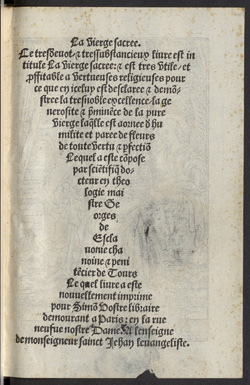 La vierge sacree.
Ce tresdeuot & tressubstancieux liure est in
titule La vierge sacree: & est tres vtile & et
proffitable a vertueuses religieuses pour
ce que en iceluy est desclaree & demõ-
stree la tresnoble excellence la ge
nerosite & p̃minẽce de la pure
vierge laq̃lle est aornee d hu
milite et paree de fleurs
de toute vertu & p̱fectiõ
Lequel a este cõpose
par sciẽtifiq̃ do-
cteur en theo
logie mai
stre Ge
orges
de
Escla
nonie cha
noine & peni
tẽcier de Tours
Le quel liure a este
nouuellement imprime
pour Simõ Vostre libraire
demourant a Paris: en la rue
neufue nostre Dame A lenseigne
de monseigneur sainct Jehan leuangeliste.